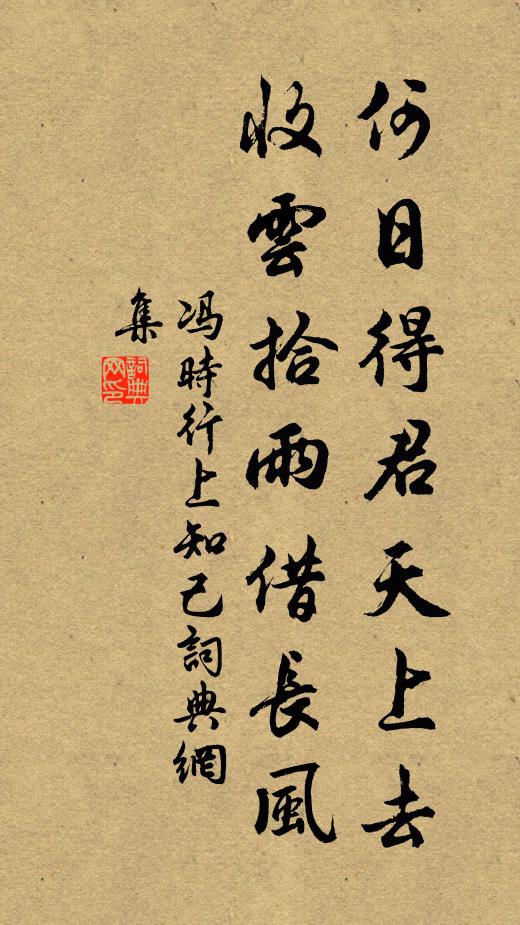 何日得君天上去
收雲拾雨借長風
馮時行上知己詞典網
集
詞典
网印